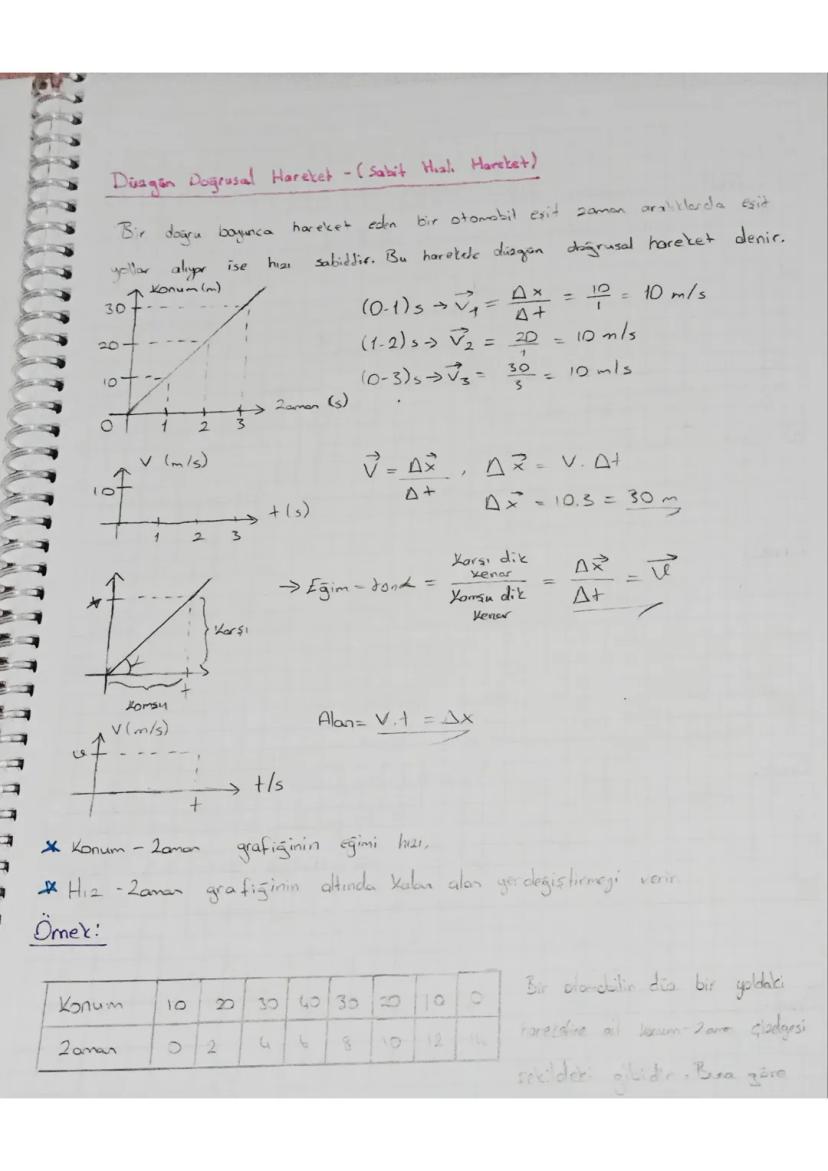 Düzgün Doğrusal Hareket - (Sabit Hızlı Hareket)
Bir doğru boyunca hareket eden bir otomobil eşit zaman aralıklarda eşit
yollar alıyor ise hızı sabiddir. Bu harekete düzgün doğrusal hareket denir.
Konum (m)
30
20
10
0 1 2 3 Zaman (s)
(0-1)s → V⃗₁ = Δx/Δt = 10/1 = 10 m/s
(1-2)s → V⃗₂ = 20/1 = 10 m/s
(0-3)s → V⃗₃ = 30/3 = 10 m/s
V (m/s)
10
1 2 3 t(s)
V⃗ = Δx⃗/Δt , Δx⃗ = V. Δt
Δx⃗ = 10.3 = 30 m
x
Karşı
t
Komşu
→ Eğim = tanα = Karşı dik kenar/Komşu dik kenar = Δx⃗/Δt = V⃗
V(m/s)
v
t
t/s
Alan = V.t = Δx
* Konum - Zaman grafiğinin eğimi hızı,
* Hız - Zaman grafiğinin altında kalan alan yerdeğiştirmeyi verir.
Örnek:
Konum 10 20 30 40 30 20 10 0
Zaman 0 2 4 6 8 10 12 14
Bir otomobilin düz bir yoldaki
hareketine ait konum-zaman çizelgesi
şekildeki gibidir. Buna göre